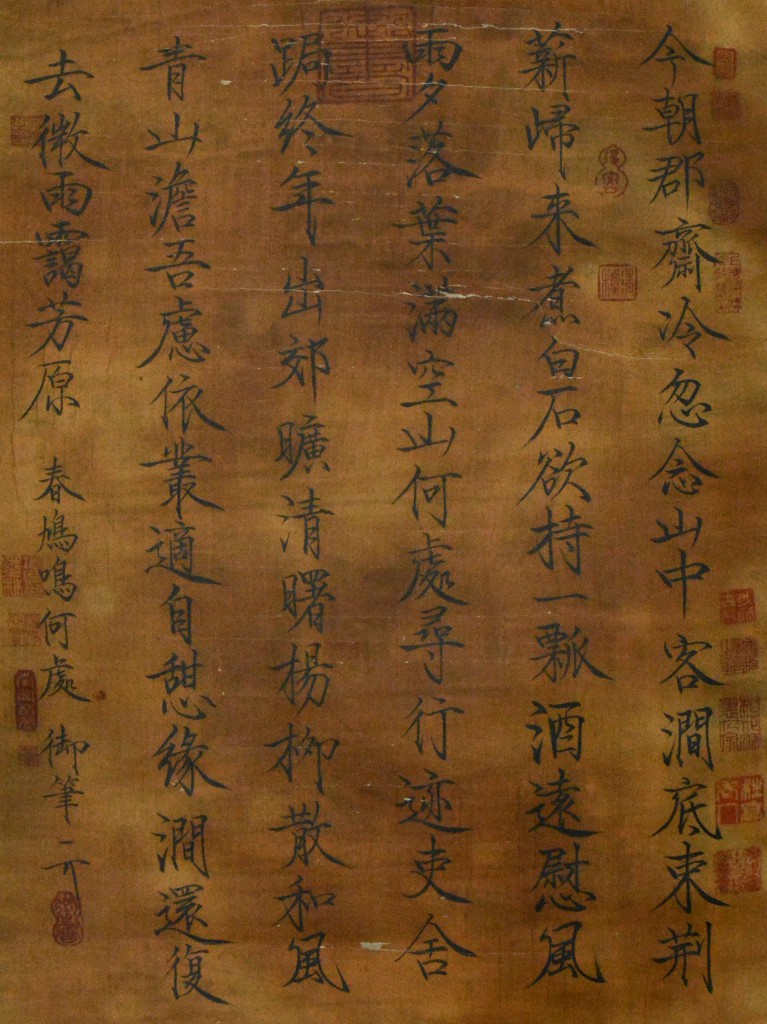 今朝郡齋冷忽念山中客澗底束荆
薪歸来煮白石欲持一瓢酒遠慰風
雨夕落葉滿空山何處尋行迹吏舍
跼終年出郊曠清曙楊柳散和風
青山澹吾慮依叢適自憩緣澗還復
去微雨靄芳原 春鳩鳴何處 御筆